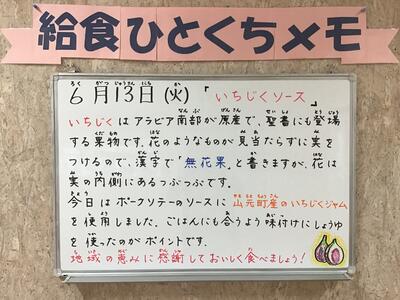 給食ひとくちメモ
6月13日(火)「いちじくソース」
いちじくはアラビア南部が原産で、聖書にも登場
する果物です。花のようなものが見当たらずに実を
つけるので、漢字で「無花果」と書きますが、花は
実の内側にあるつぶつぶです。
今日はポークソテーのソースに山元町産のいちじくジャム
を使用しました。ごはんにも合うよう味付けにしょうゆ
を使ったのがポイントです。
地域の恵みに感謝しておいしく食べましょう!